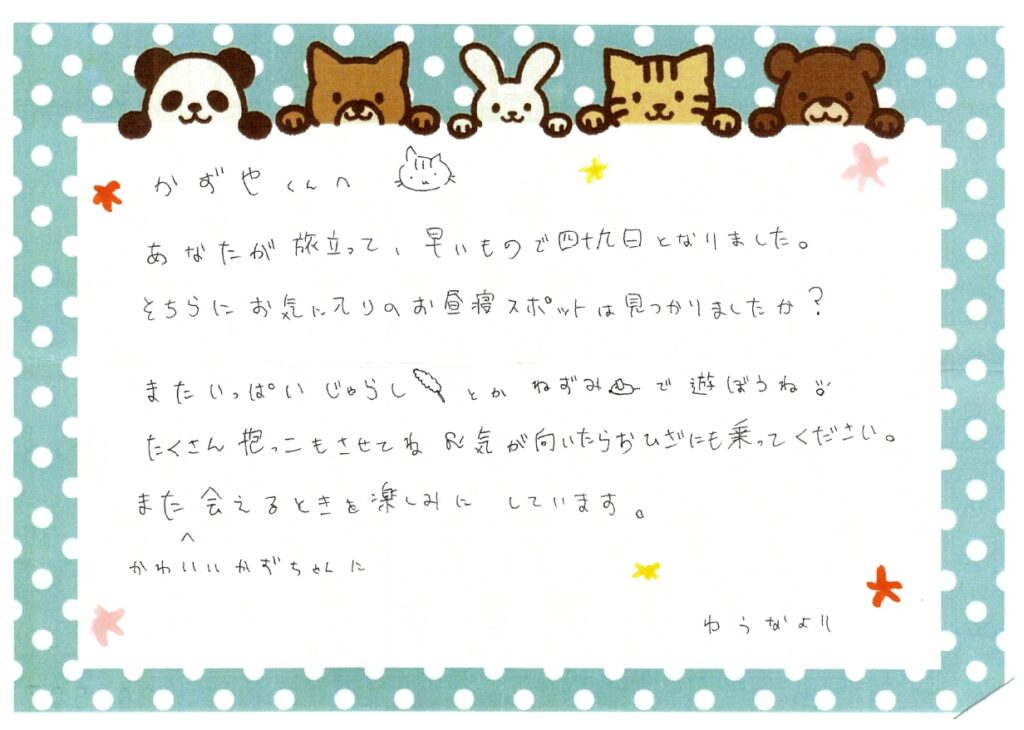 かずやくんへ
あなたが旅立って、早いもので四十九日となりました。
そちらにお気に入りのお昼寝スポットは見つかりましたか？
またいっぱいじゃらしとかねずみで遊ぼうね
たくさん抱っこもさせてね 気が向いたらおひざにも乗ってください。
また会えるときを楽しみにしています。
かわいいかずちゃんに
ゆうなより